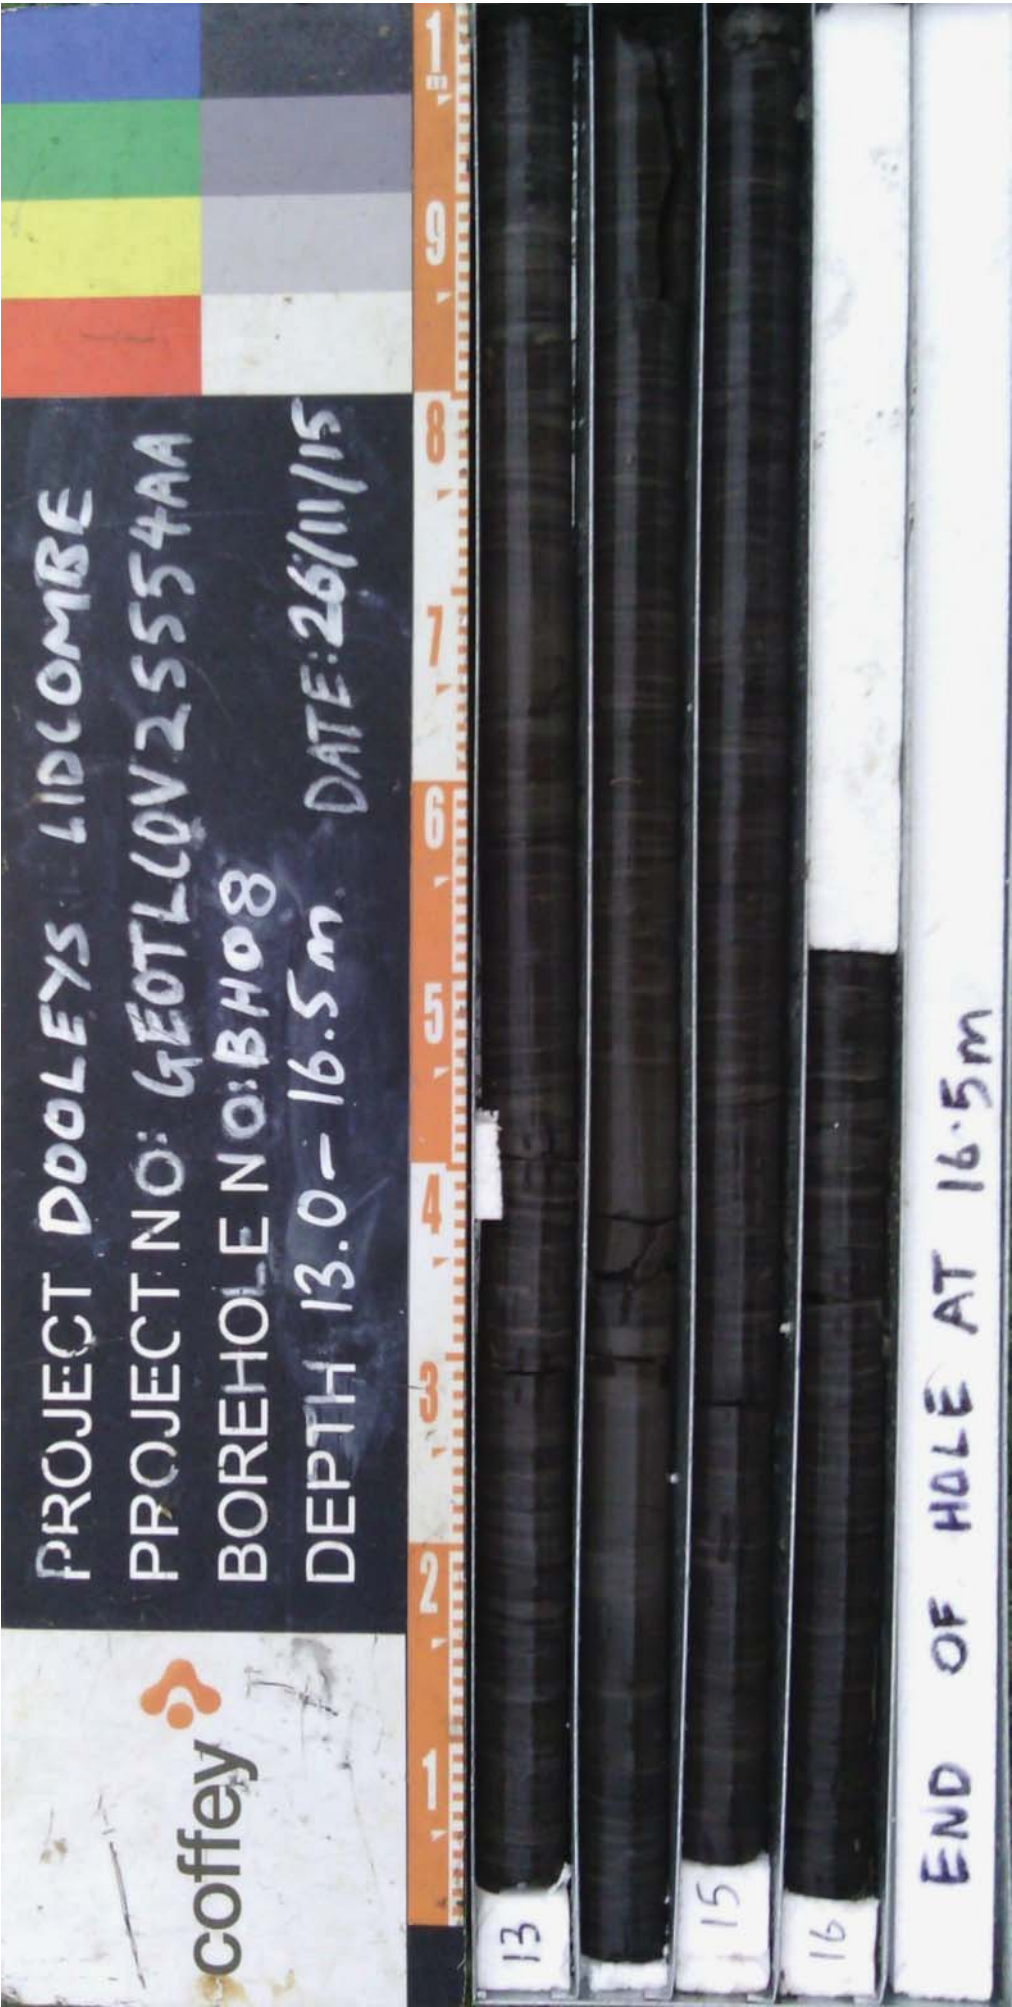 PROJECT DOOLEYS LIDCOMBE
PROJECT NO: GEOTLCOV25554AA
BOREHOLE NO: BH08
DEPTH 13.0-16.5m DATE: 26/11/15
coffey
1m
9
8
7
6
5
4
3
2
1
13
15
16
END OF HOLE AT 16.5m